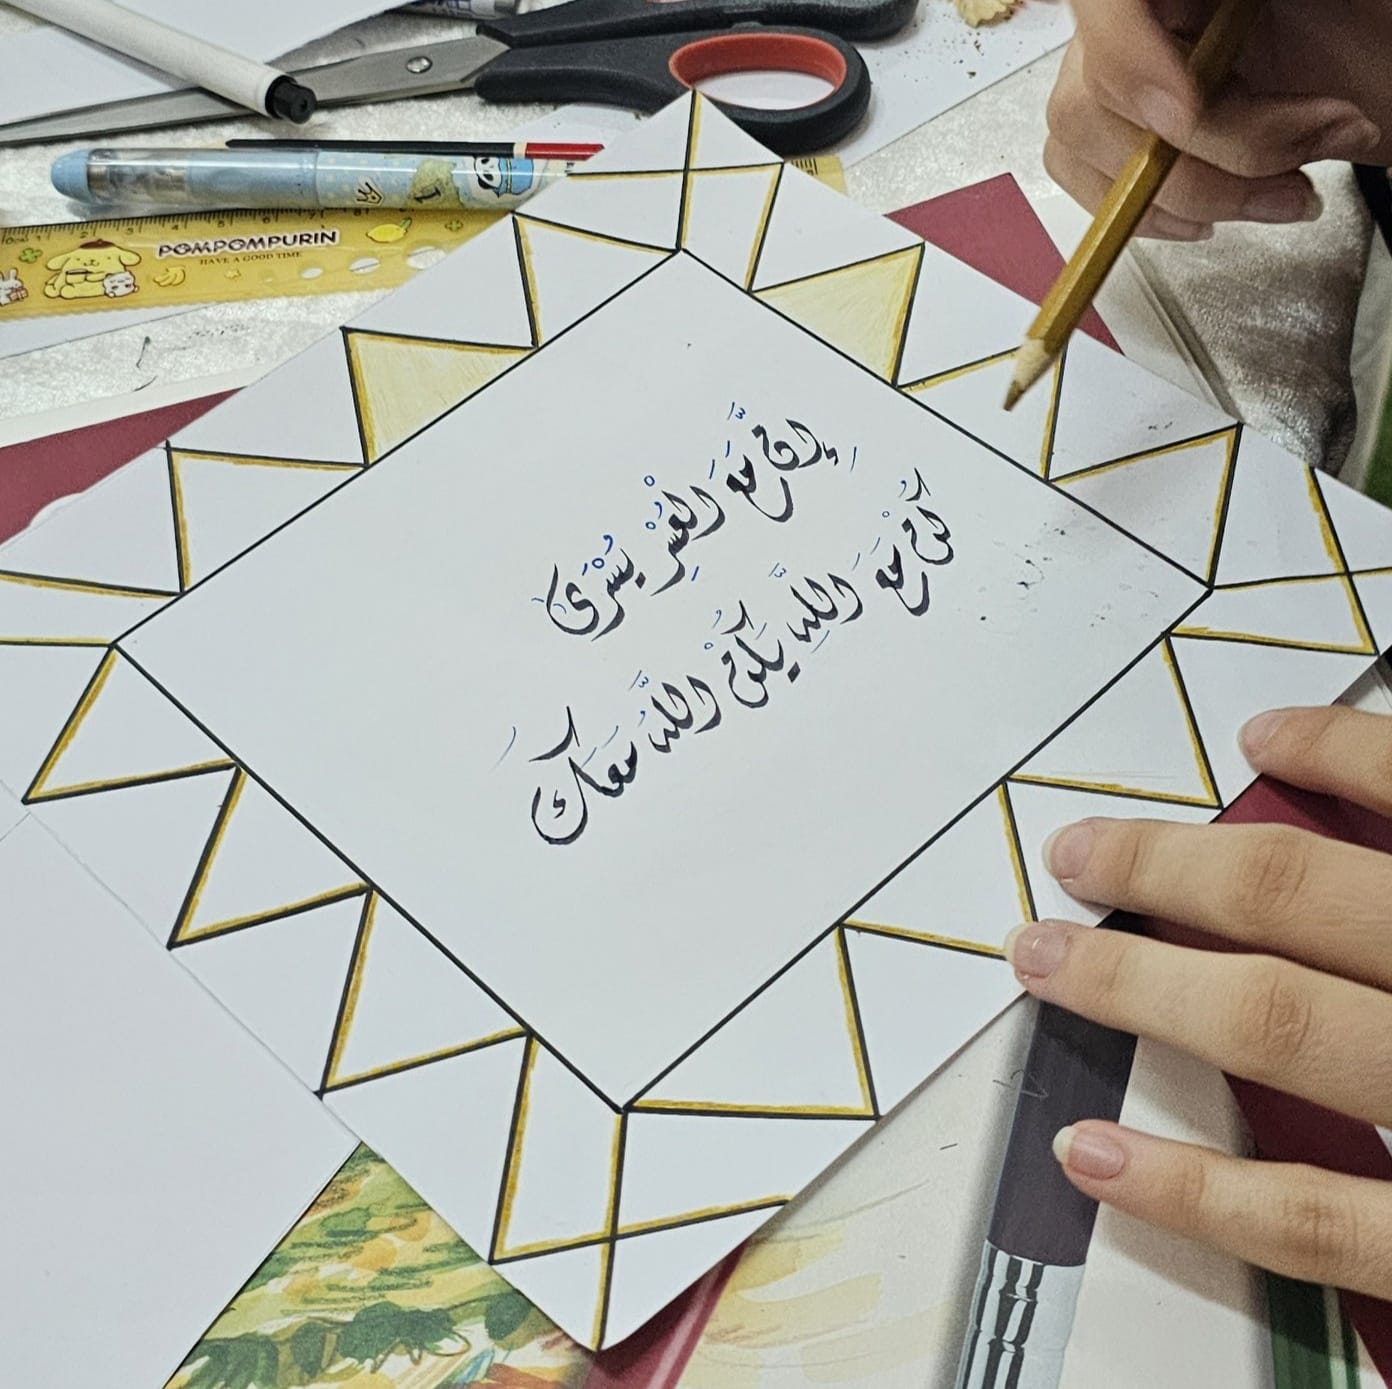 POMPOMPURIN
HAVE A GOOD TIME
إِنَّ مَعَ الْعُسْرِ يُسْرَى
كُنْ مَعَ اللَّهِ يَكُنْ اللَّهُ مَعَكَ